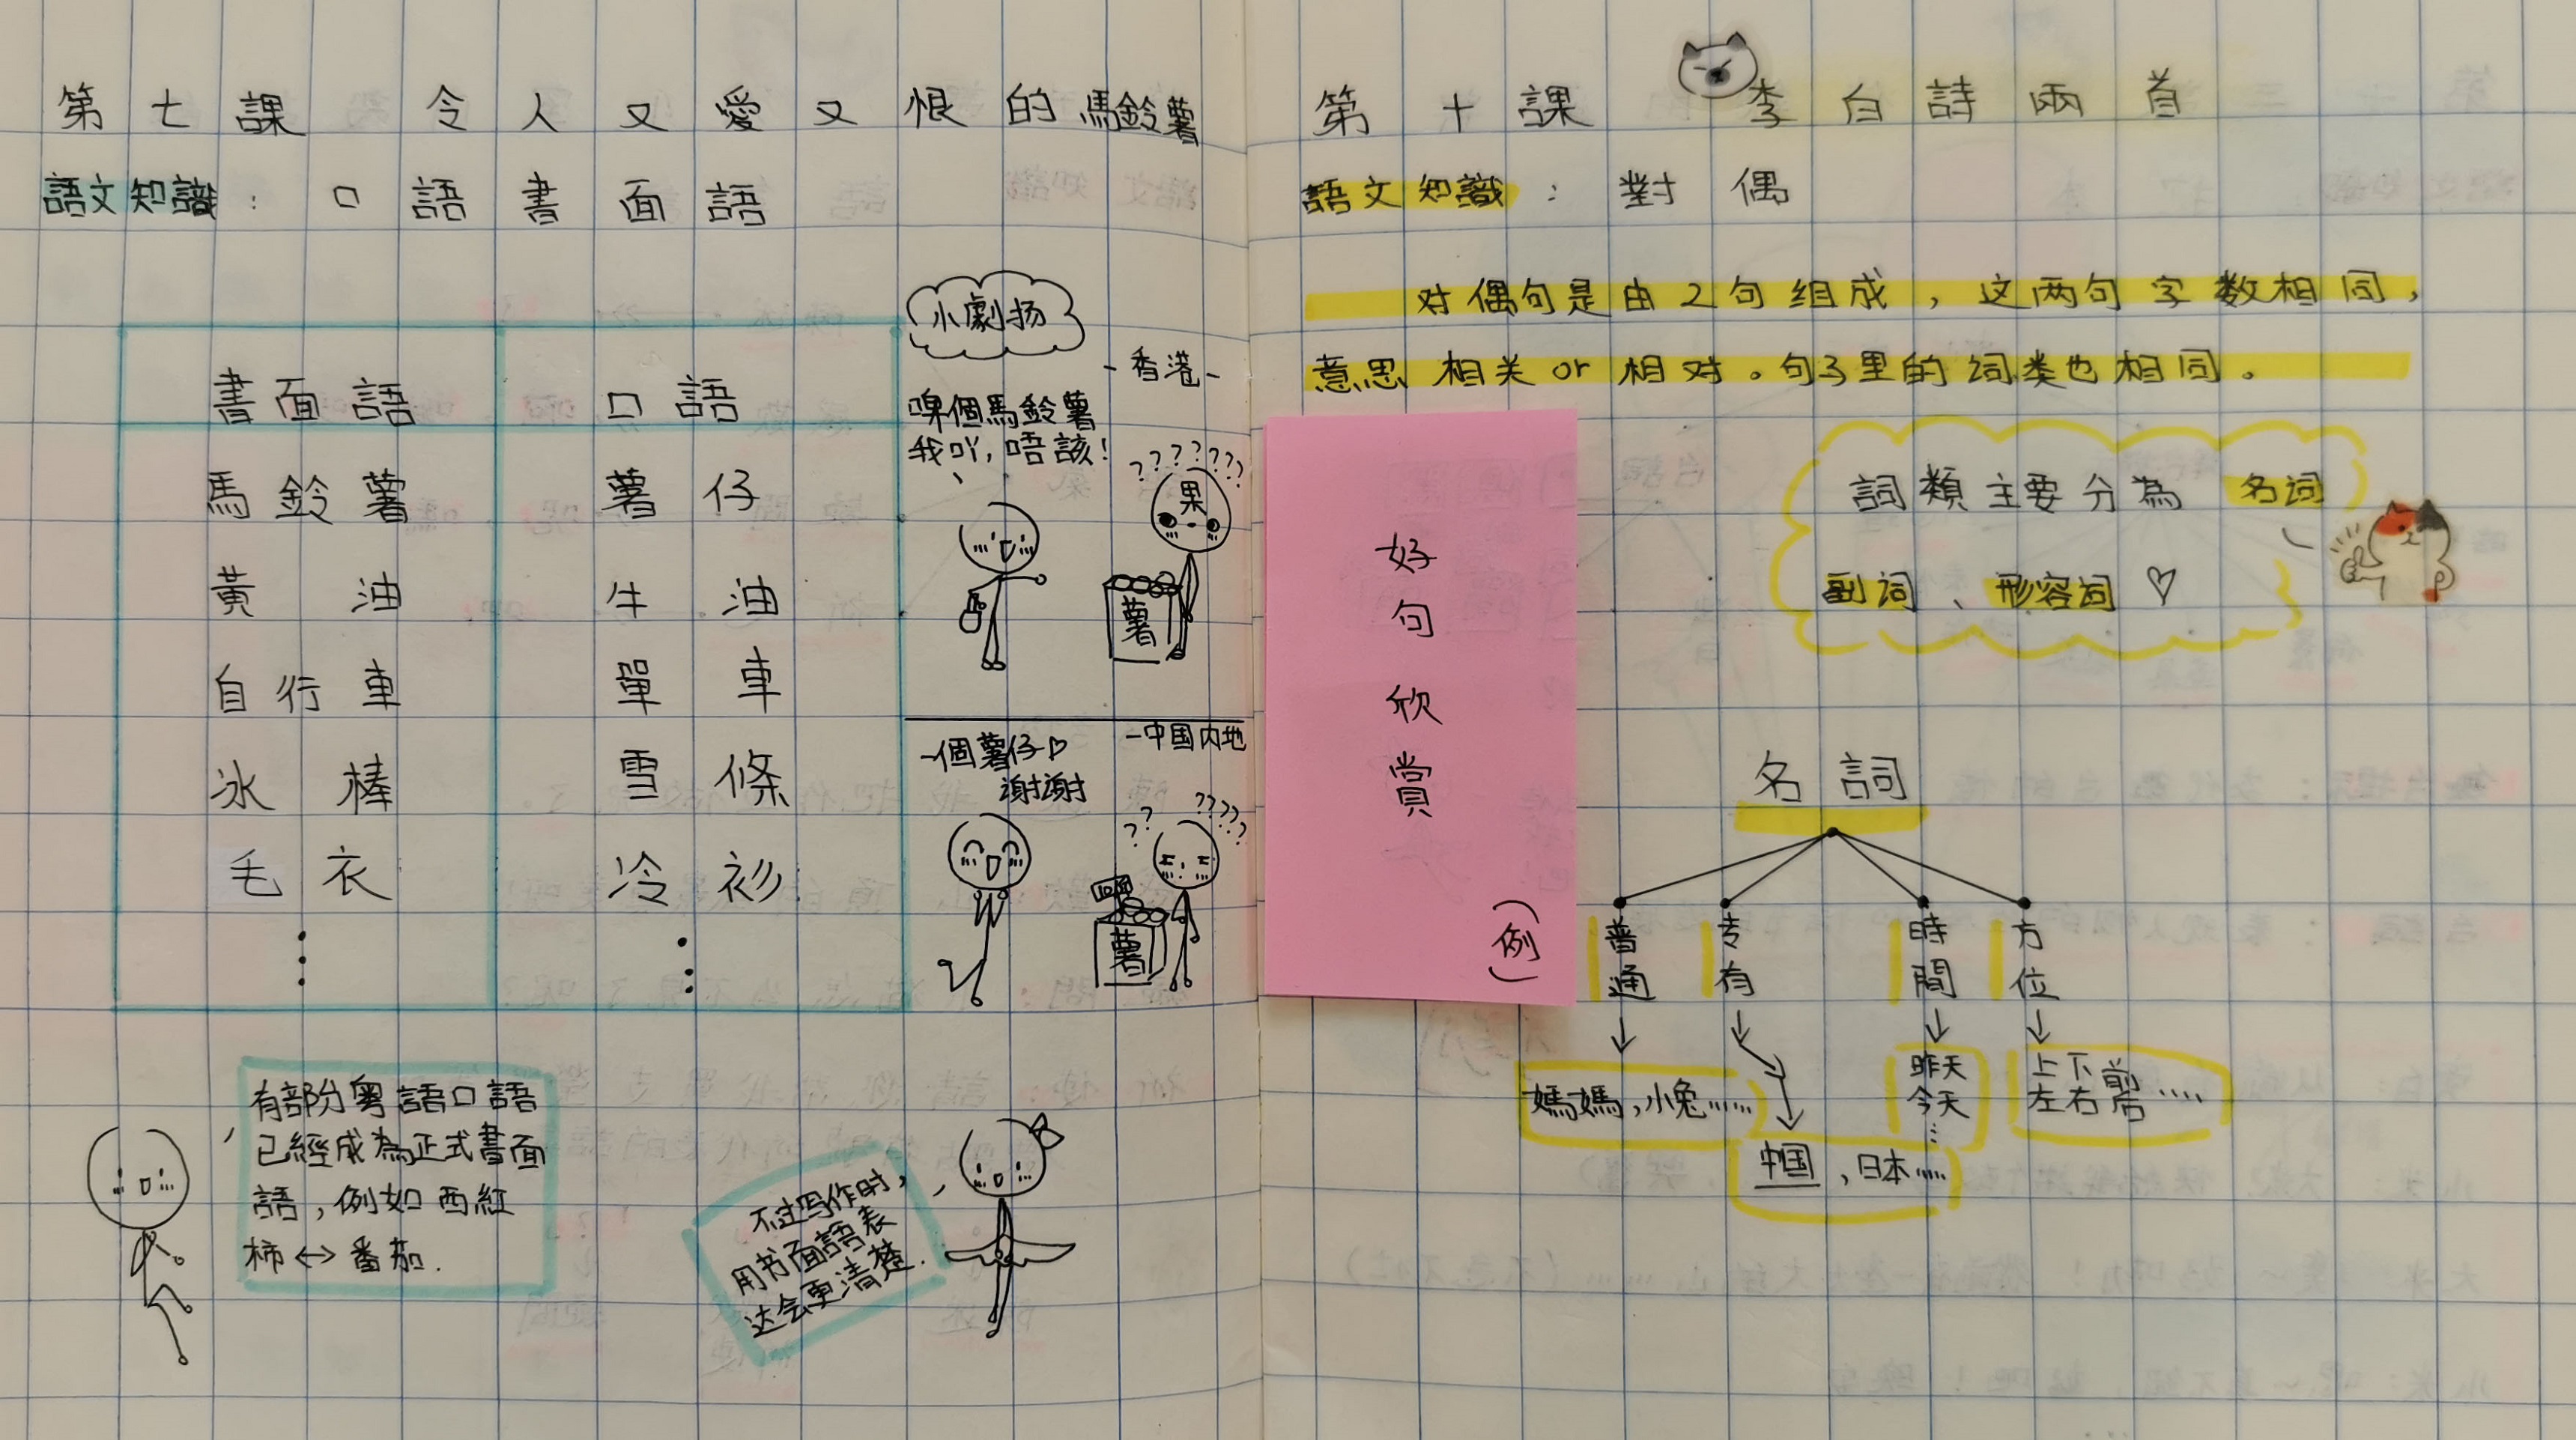 第七課 令人又愛又恨的馬鈴薯
語文知識：口語書面語
書面語 口語
馬鈴薯 薯仔
黃油 牛油
自行車 單車
冰棒 雪條
毛衣 冷衫
小劇扬
-香港-
啤個馬鈴薯
我吖，唔該！
? ? ? ? ? ? ?
果
薯
-中国内地
一個薯仔♡
謝謝
? ?
? ? ? ? ?
薯
有部分粵語口語
已經成為正式書面
語，例如西紅
柿↔番茄.
不过写作时，
用书面語表
达会更清楚.
第十課 李白詩兩首
語文知識：對偶
对偶句是由2句组成，这两句字数相同，
意思相关or相对。句子里的词类也相同。
好句欣賞
（例）
詞類主要分為 名词
副词、形容词♡
名詞
普通 专有 時間 方位
媽媽，小兔……
中国，日本……
昨天
今天
上下前
左右后……